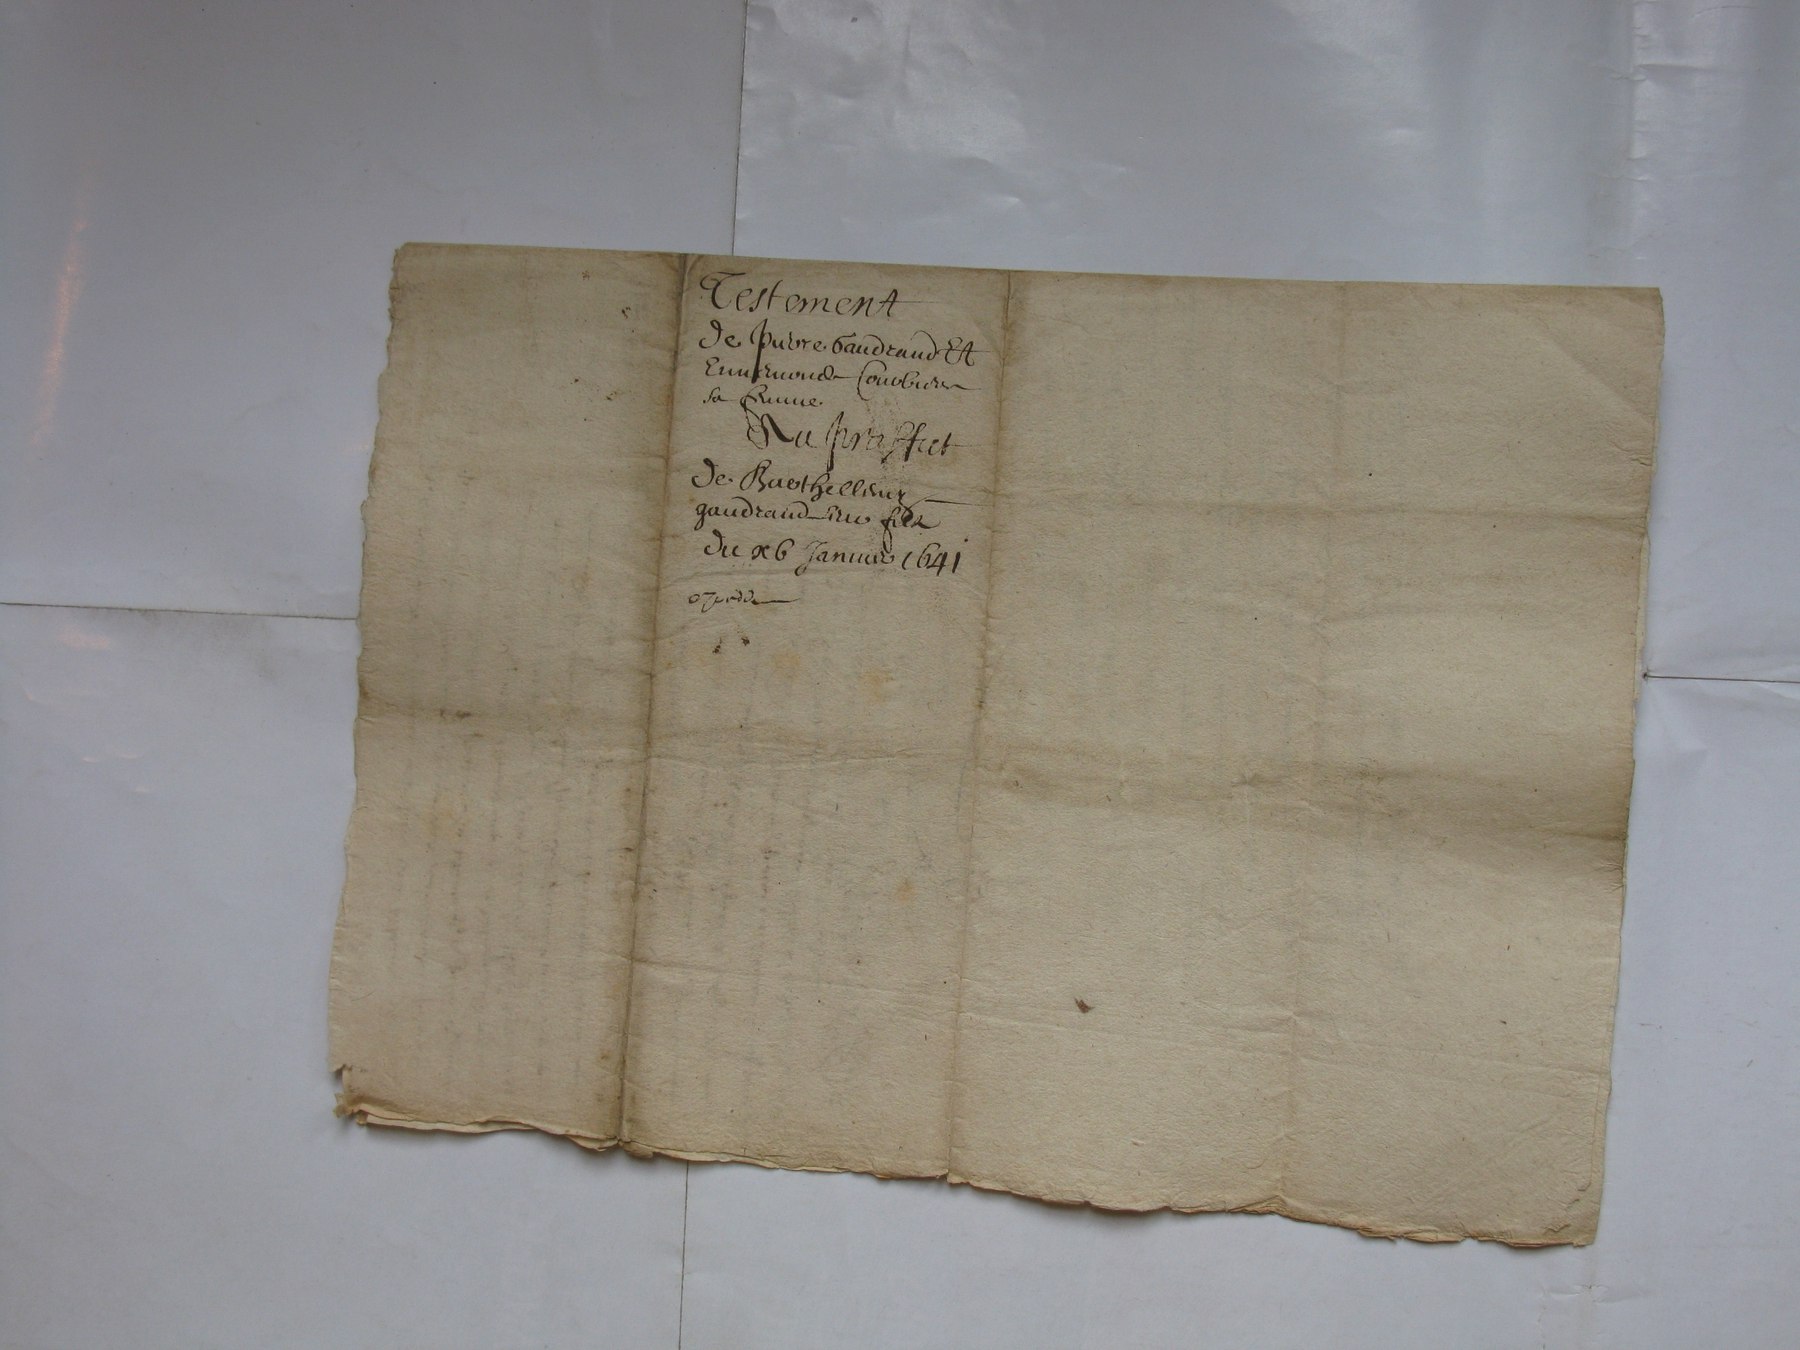 Testement
de pierre Gaudrand Et
Ennemonde Combiere
sa femme
Au proffict
de Barthellemy
gaudrand leur filz
du x6 Janvier 1641